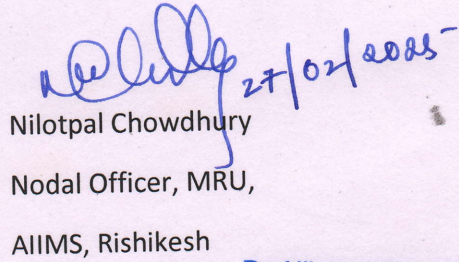 27/02/2025
Nilotpal Chowdhury
Nodal Officer, MRU,
AIIMS, Rishikesh